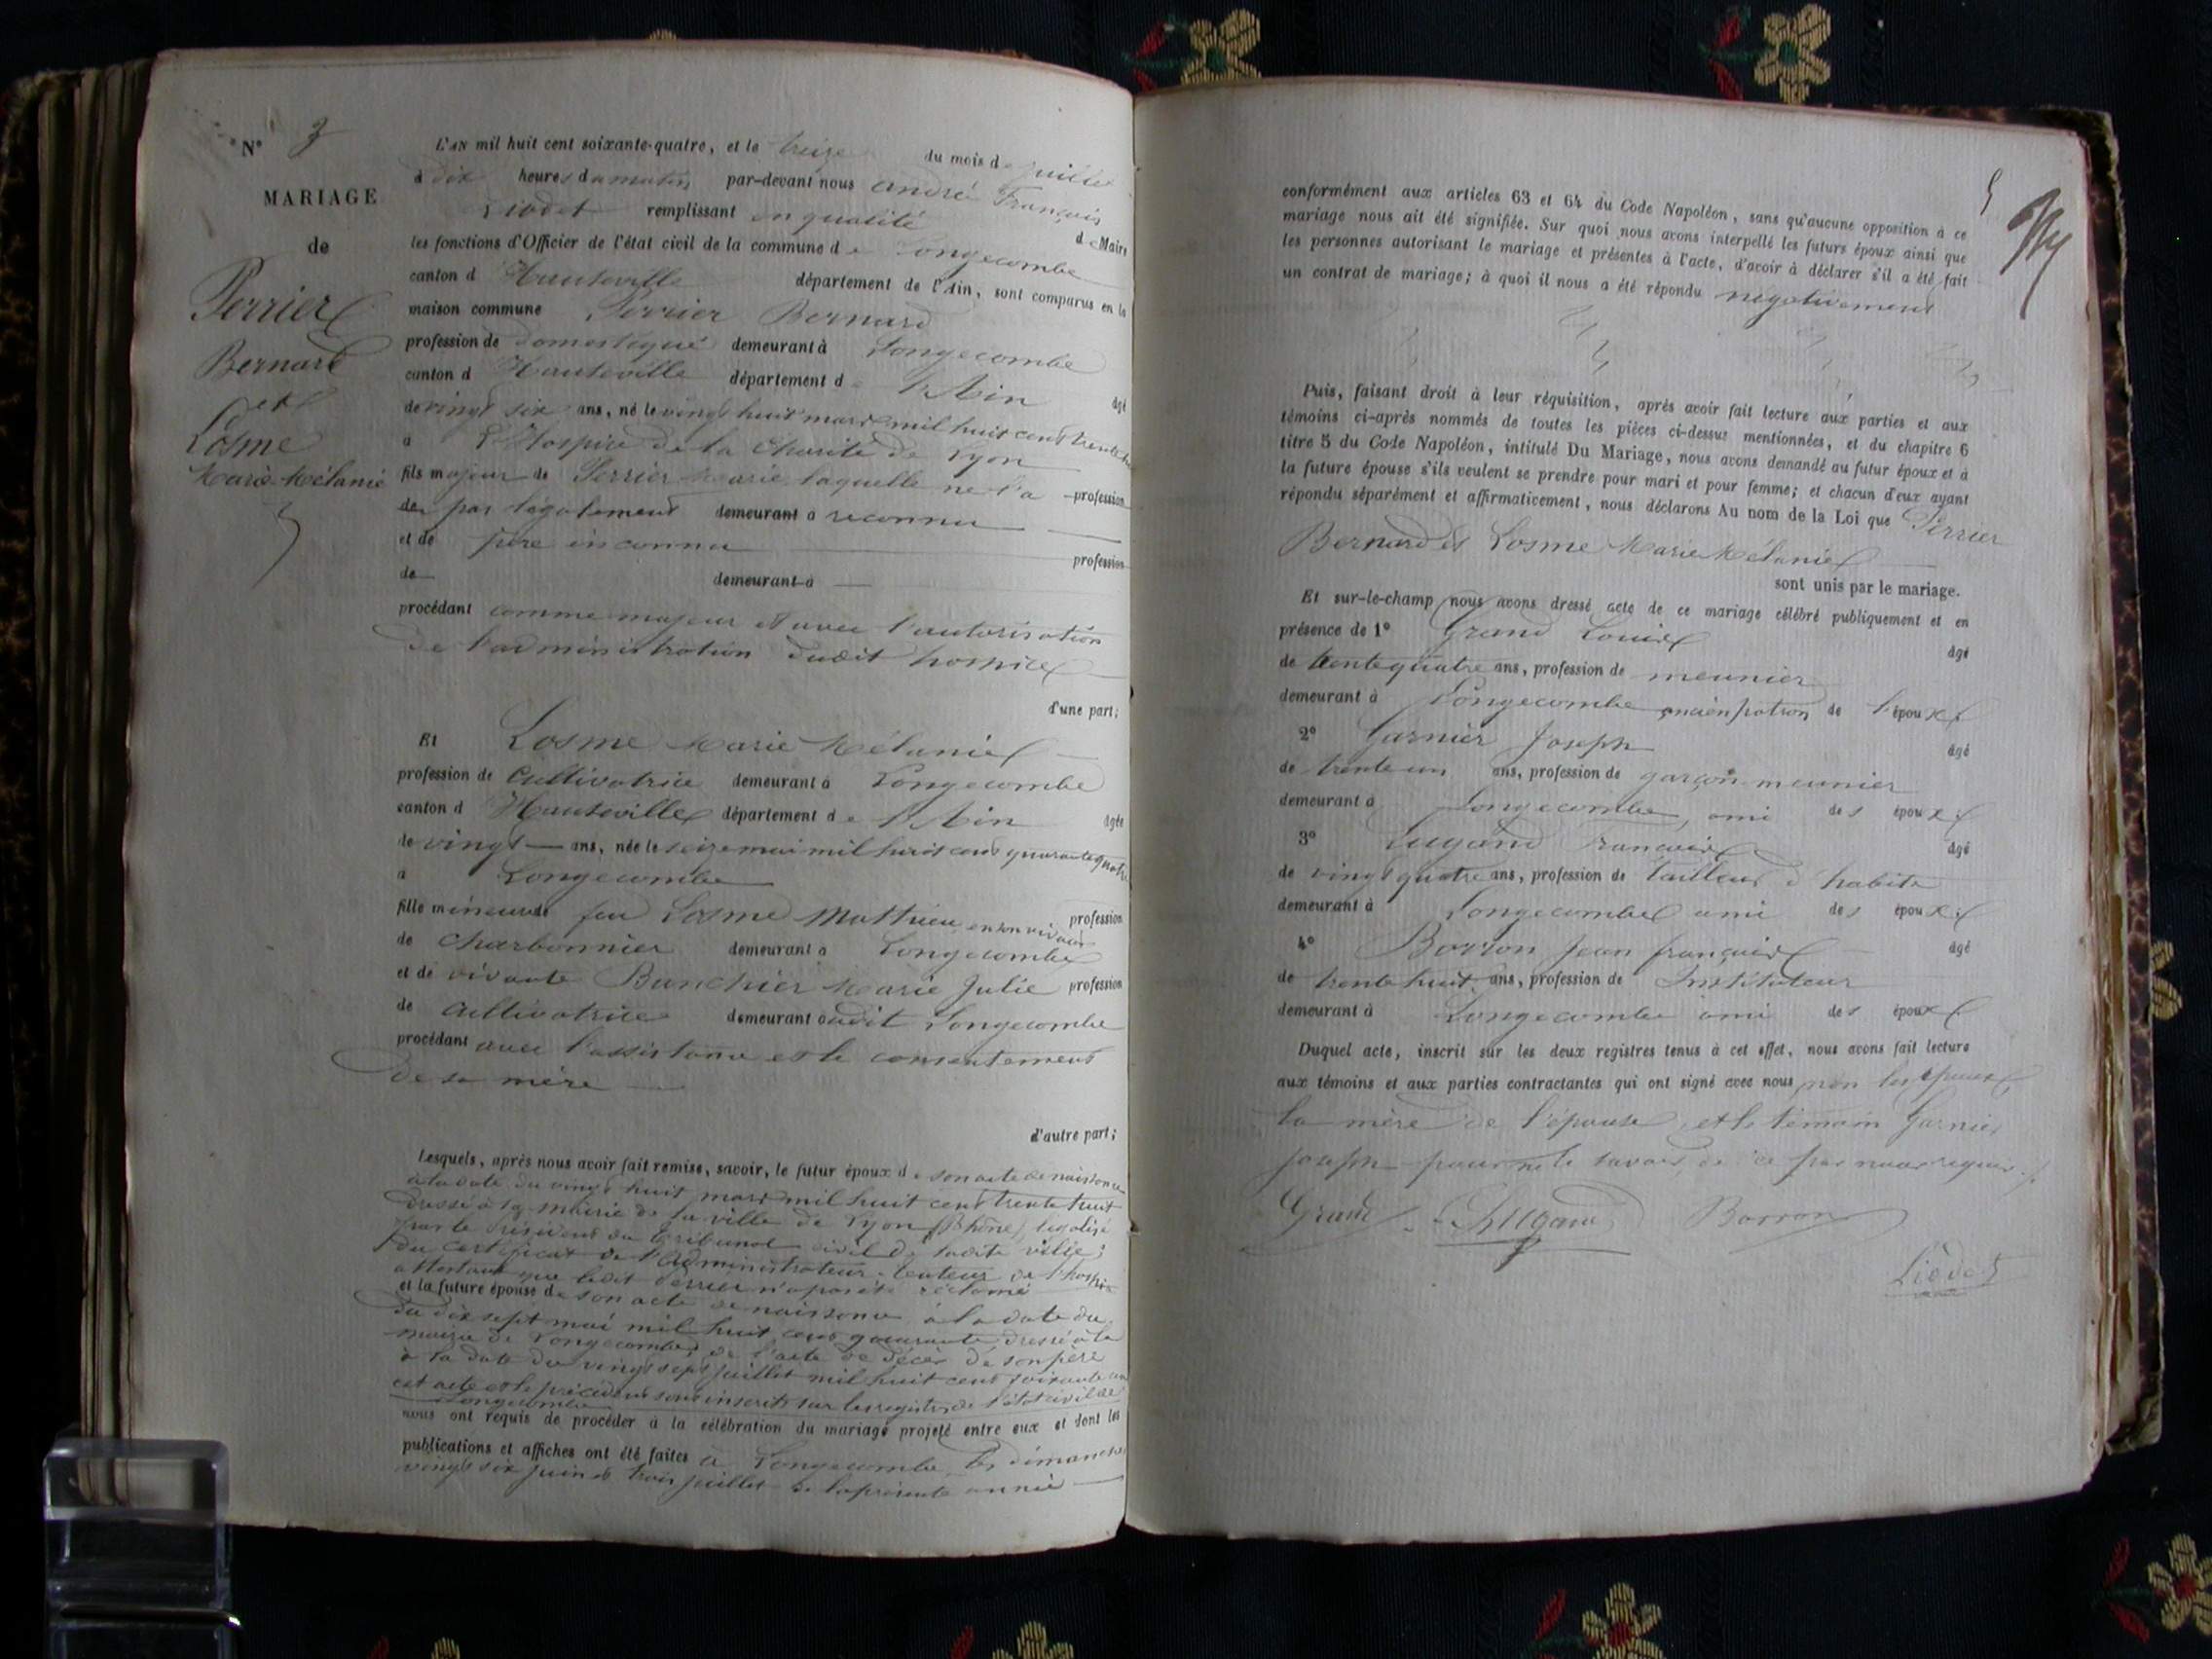 N° 3
MARIAGE
de
Perrier
Bernard
et
Losme
Marie Mélanie
L'AN mil huit cent soixante-quatre, et le treize du mois de juillet
à dix heures du matin par-devant nous André François
Liodet remplissant en qualité de Maire
les fonctions d'Officier de l'état civil de la commune de Longecombe
canton d Hauteville département de l'Ain, sont comparus en la
maison commune Perrier Bernard
profession de domestique demeurant à Longecombe
canton d Hauteville département de l'Ain âgé
de vingt six ans, né le vingt huit mars mil huit cent trente huit
à L'Hospice de la Charité de Lyon
fils majeur de Perrier Marie laquelle ne l'a profession
de pas légalement demeurant à reconnu
et de père inconnu profession
de demeurant à
procédant comme majeur et avec l'autorisation
de l'administration dudit hospice
d'une part;
Et Losme Marie Mélanie
profession de Cultivatrice demeurant à Longecombe
canton d Hauteville département de l'Ain âgée
de vingt ans, née le seize mai mil huit cent quarante quatre
à Longecombe
fille mineure de feu Losme Mathieu en son vivant profession
de Charbonnier demeurant à Longecombe
et de vivante Bunchier Marie Julie profession
de Cultivatrice demeurant audit Longecombe
procédant avec l'assistance et le consentement
de sa mère
d'autre part;
Lesquels, après nous avoir fait remise, savoir, le futur époux de son acte de naissance
à la date du vingt huit mars mil huit cent trente huit
dressé à la mairie de la ville de Lyon (Rhône) légalisé
par le Président du tribunal civil de ladite ville;
du certificat de l'Administrateur-tuteur de l'hospice
attestant que ledit Perrier n'a pas été réclamé
et la future épouse de son acte de naissance à la date du
du dix sept mai mil huit cent quarante dressé à la
mairie de Longecombe, de l'acte de décès de son père
à la date du vingt sept juillet mil huit cent soixante un
cet acte et le précédent sont inscrits sur les registres de l'état civil de
Longecombe
nous ont requis de procéder à la célébration du mariage projeté entre eux et dont les
publications et affiches ont été faites à Longecombe les dimanches
vingt six juin et trois juillet de la présente année
5
conformément aux articles 63 et 64 du Code Napoléon, sans qu'aucune opposition à ce
mariage nous ait été signifiée. Sur quoi nous avons interpellé les futurs époux ainsi que
les personnes autorisant le mariage et présentes à l'acte, d'avoir à déclarer s'il a été fait
un contrat de mariage; à quoi il nous a été répondu négativement
Puis, faisant droit à leur réquisition, après avoir fait lecture aux parties et aux
témoins ci-après nommés de toutes les pièces ci-dessus mentionnées, et du chapitre 6
titre 5 du Code Napoléon, intitulé Du Mariage, nous avons demandé au futur époux et à
la future épouse s'ils veulent se prendre pour mari et pour femme; et chacun d'eux ayant
répondu séparément et affirmativement, nous déclarons Au nom de la Loi que Perrier
Bernard et Losme Marie Mélanie
sont unis par le mariage.
Et sur-le-champ nous avons dressé acte de ce mariage célébré publiquement et en
présence de 1° Grand Louis âgé
de trente quatre ans, profession de meunier
demeurant à Longecombe ancien patron de l'époux
2° Garnier Joseph âgé
de trente un ans, profession de garçon meunier
demeurant à Longecombe, ami des époux
3° Lugand François âgé
de vingt quatre ans, profession de tailleur d'habits
demeurant à Longecombe ami des époux
4° Borron Jean François âgé
de trente huit ans, profession de Instituteur
demeurant à Longecombe ami des époux
Duquel acte, inscrit sur les deux registres tenus à cet effet, nous avons fait lecture
aux témoins et aux parties contractantes qui ont signé avec nous non les époux
la mère de l'épouse et le témoin Garnier
Joseph pour ne le savoir, de ce par nous requis
Grand Lugand Borron
Liodet